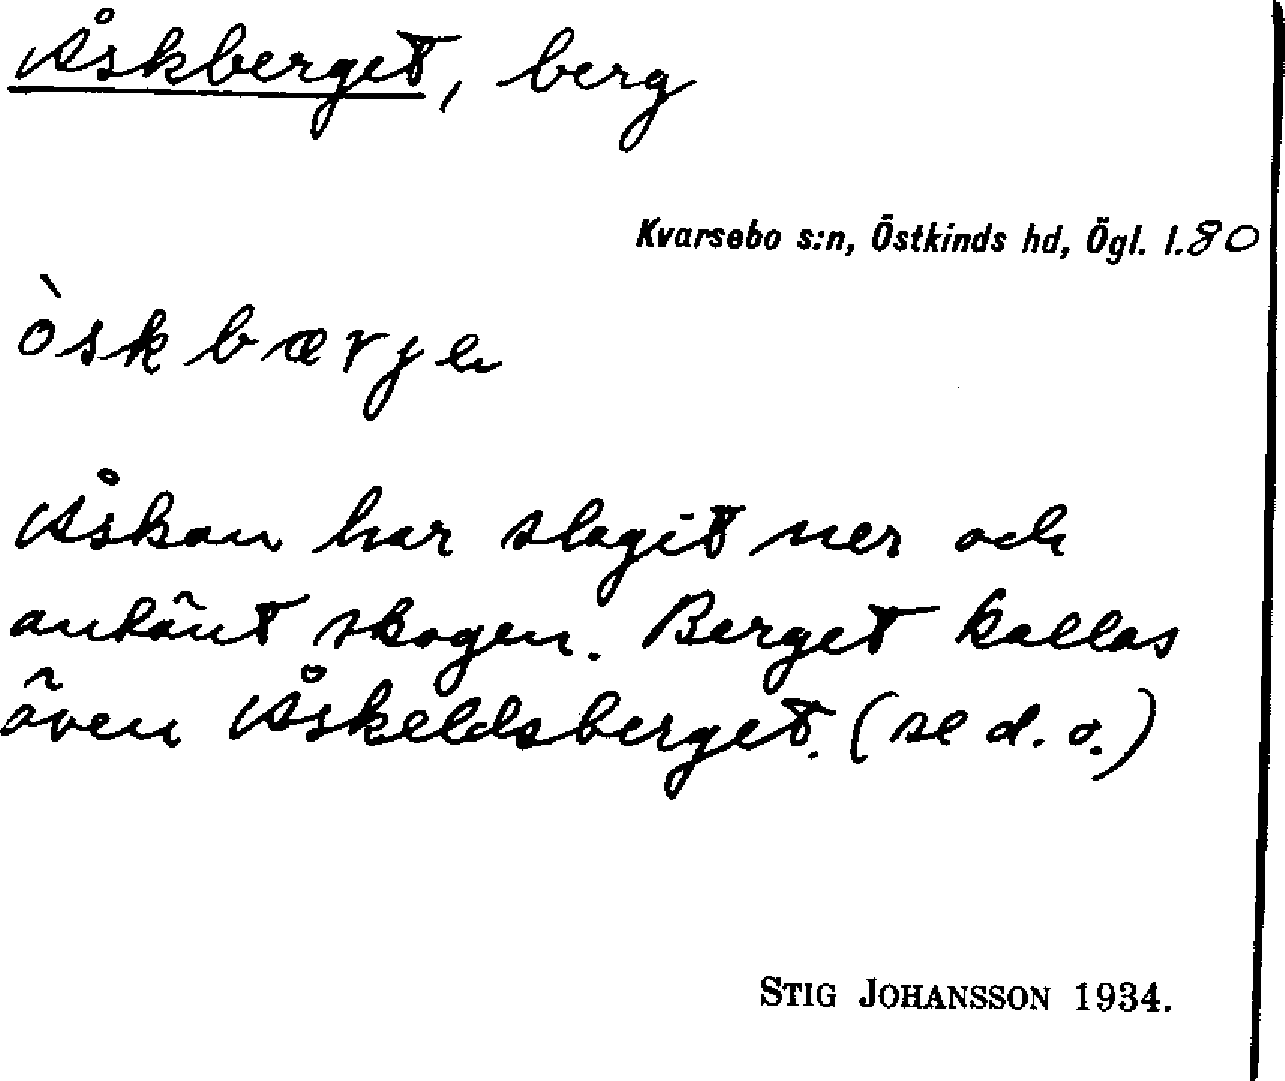 Åskberget, berg
Kvarsebo s:n, Östkinds hd, Ögl. l. 80
òskbærje
Åskan har slagit ner och
antänt skogen. Berget kallas
även Åskeldsberget. (se d. o.)
STIG JOHANSSON 1934.